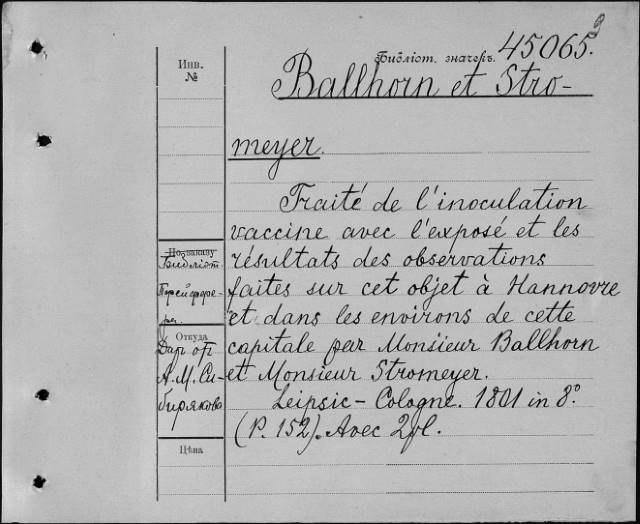 Инв.
№
Библіот. значекъ. 45065.
Ballhorn et Stro-
meyer.
Traité de l'inoculation
vaccine avec l'exposé et les
résultats des observations
faites sur cet objet à Hannovre
et dans les environs de cette
capitale par Monsieur Ballhorn
et Monsieur Stromeyer.
Leipsic - Cologne. 1801 in 8°.
(P. 152). Avec 2 pl.
По заказу
Библіот.
Откуда
Дар от
А. М. Си-
бирякова
Цѣна